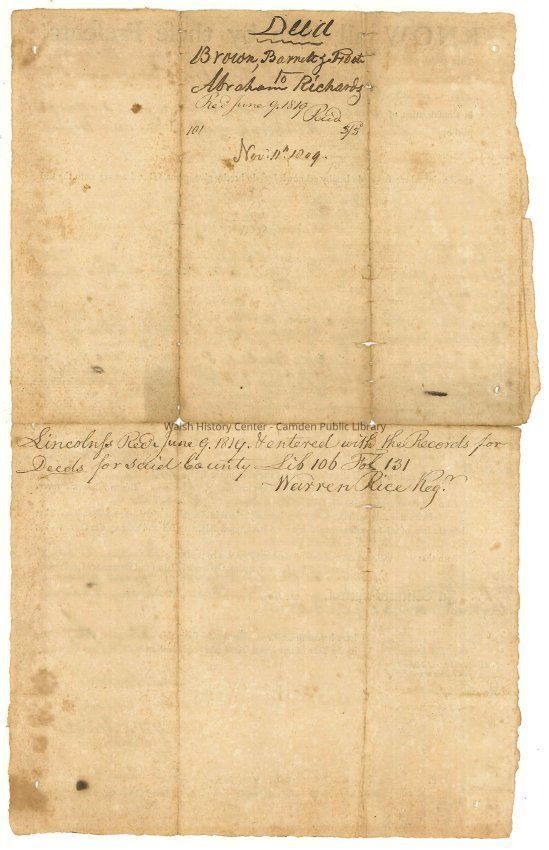 Deed
Brown, Barnett & Frost
to
Abraham Richards
Rec'd June 9, 1819
Paid
101 5/5
Nov. 11th 1809.
Walsh History Center - Camden Public Library
Lincoln ss Rec'd June 9. 1819. & entered with the Records for
Deeds for said County Lib 106 Fol 131
Warren Rice Regr